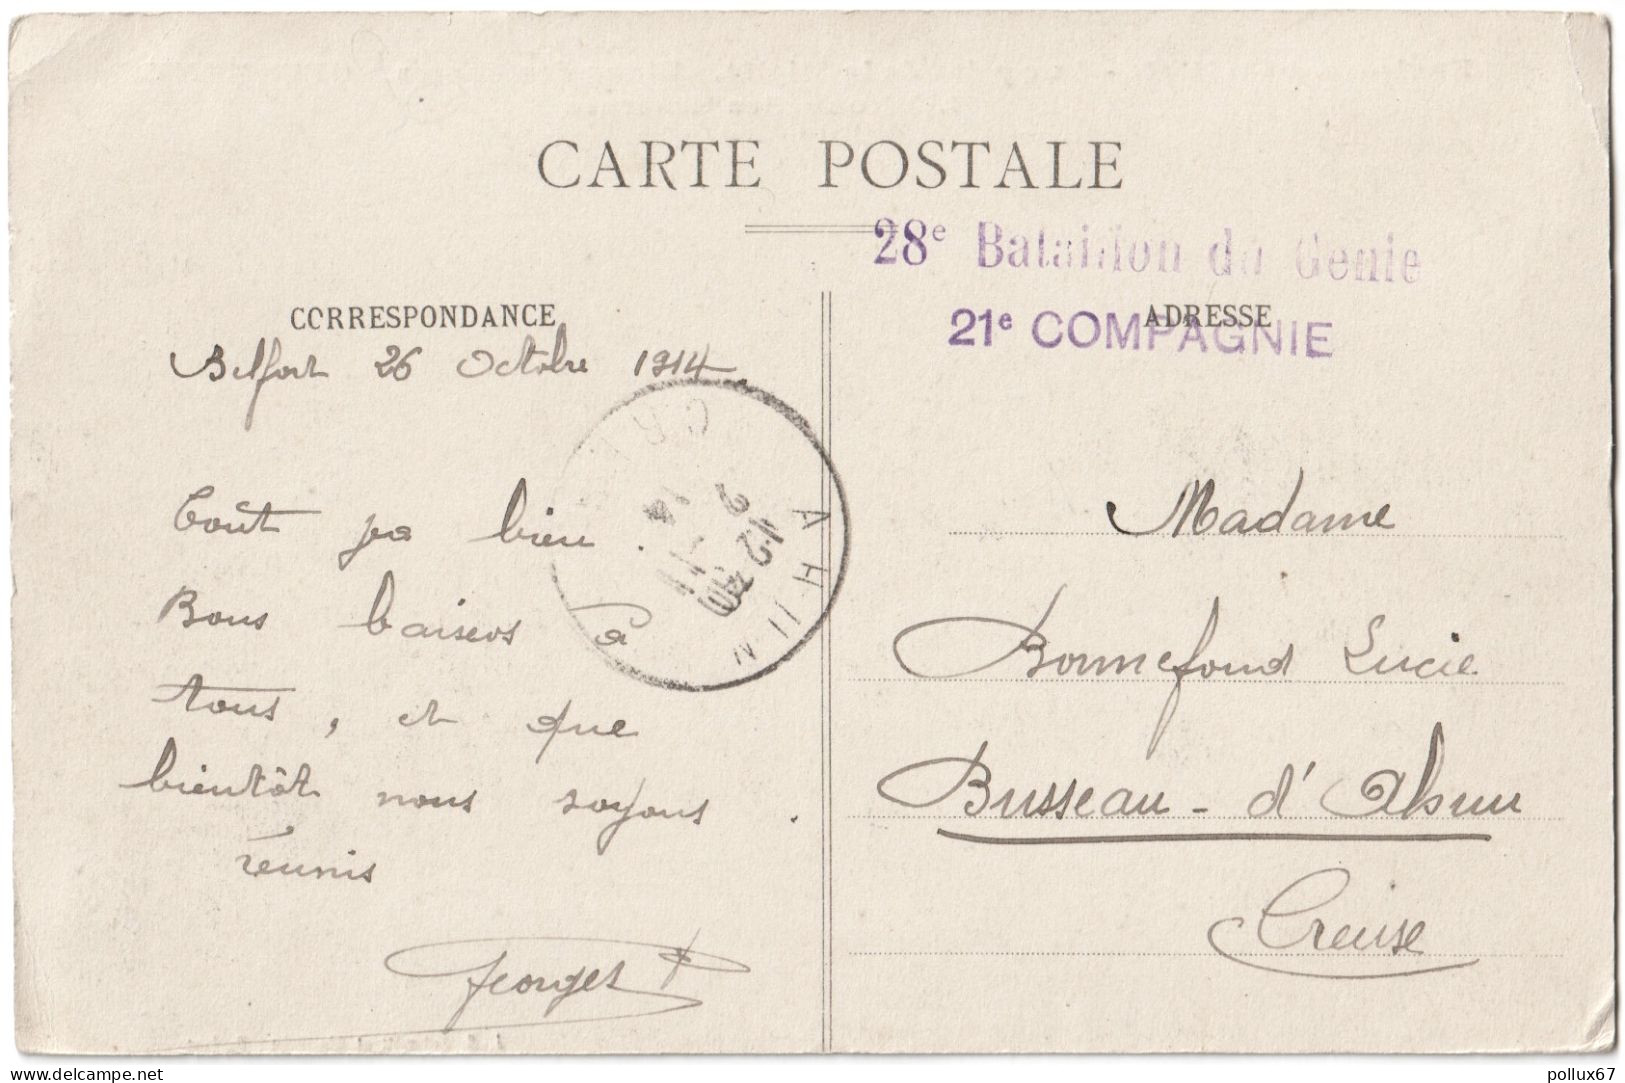 CARTE POSTALE
28e Bataillon du Génie
21e COMPAGNIE
CORRESPONDANCE
ADRESSE
Belfort 26 Octobre 1914
Tout va bien.
Bons baisers à
tous, et que
bientôt nous soyons
réunis.
Georges
AHUN
12
Madame
Bonnefond Lucie
Busseau-d'Ahun
Creuse
www.delcampe.net
pollux67